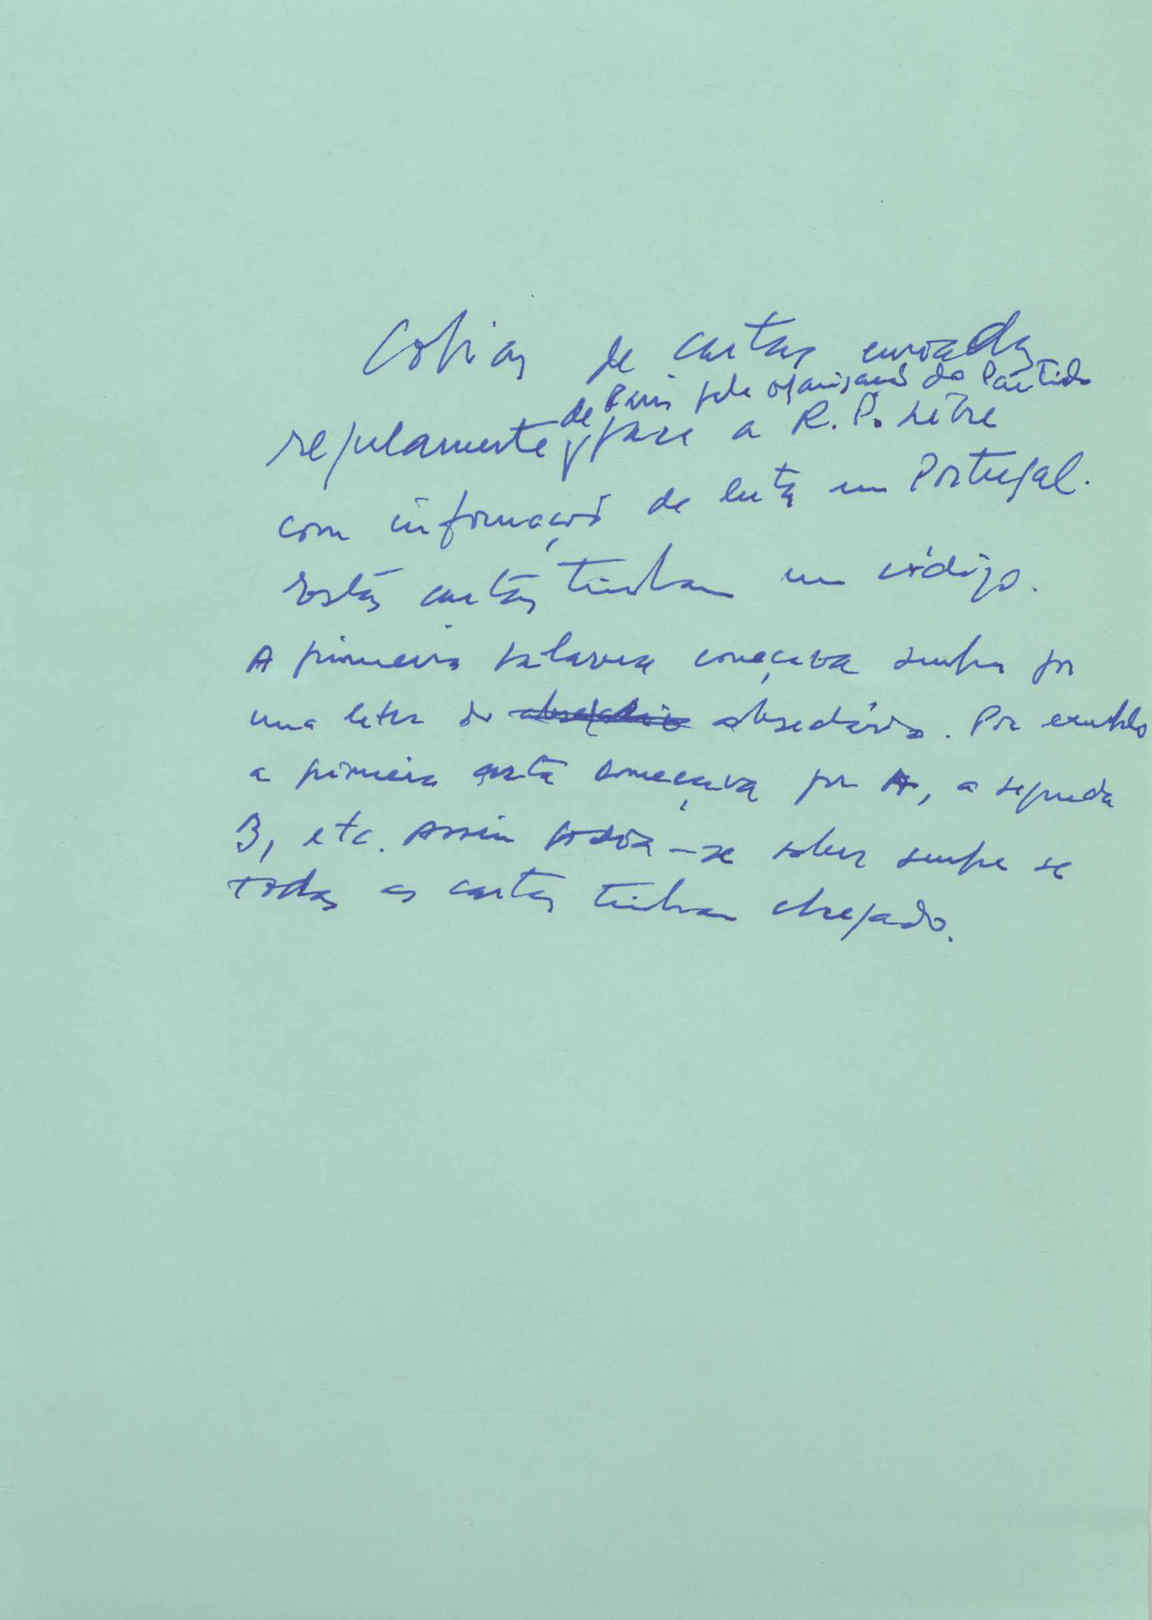 Cópias de cartas enviadas
de Paris pela organização do Partido
regularmente para a R. P. Livre
com informação de luta em Portugal.
Estas cartas tinham um código.
A primeira palavra começava sempre por
uma letra do abecedário. Por exemplo
a primeira carta começava por A, a segunda
B, etc. Assim podia-se saber sempre se
todas as cartas tinham chegado.